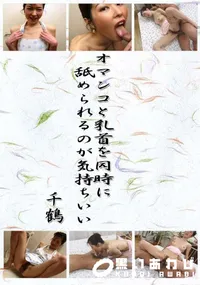 オマンコと乳首を同時に
舐められるのが気持ちいい
千鶴
黒いあわび
KUROI AWABI